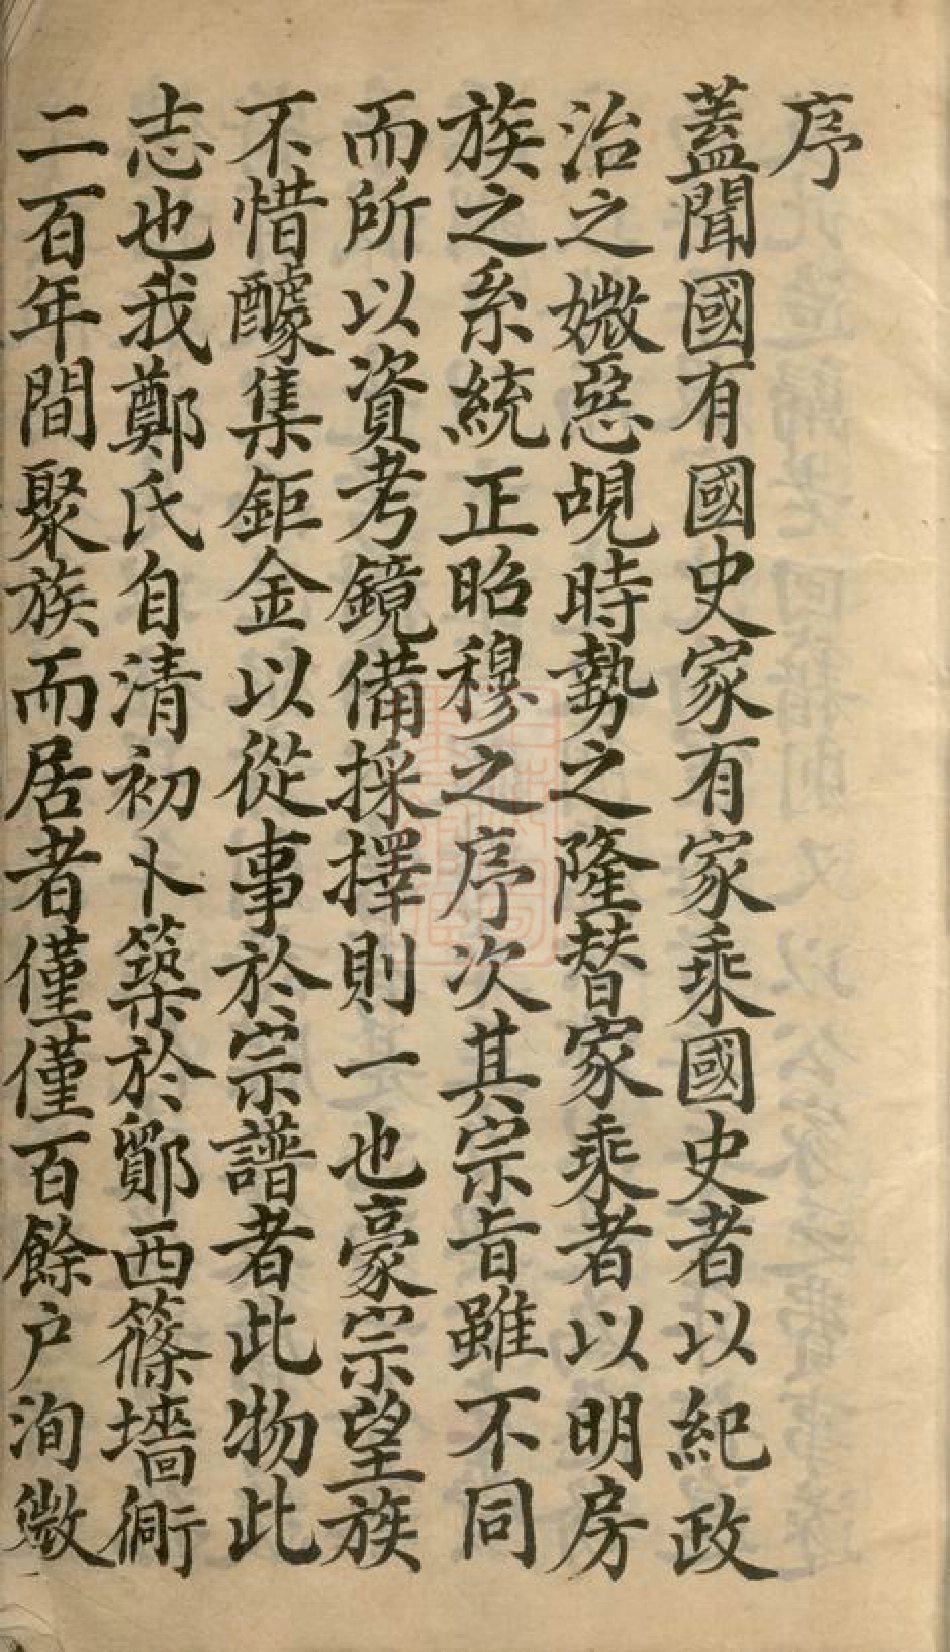 序
蓋聞國有國史家有家乘國史者以紀政
治之媺惡覘時勢之隆替家乘者以明房
族之系統正昭穆之序次其宗旨雖不同
而所以資考鏡備採擇則一也豪宗望族
不惜醵集鉅金以從事於宗譜者此物此
志也我鄭氏自清初卜築於鄮西篠墻衕
二百年間聚族而居者僅僅百餘户洵微